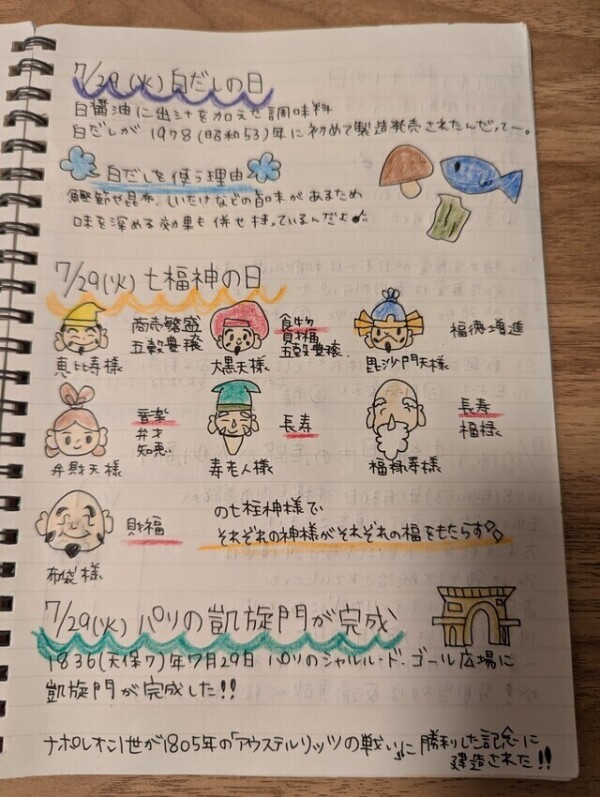 7/29(火)白だしの日
白醤油に出汁を加えた調味料
白だしが1978(昭和53)年に初めて製造発売されたんだってー。
白だしを使う理由
鰹節や昆布、しいたけなどの旨味があるため
味を深める効果も併せ持っているんだよ♪
7/29(火)七福神の日
恵比寿様
商売繁盛
五穀豊穣
大黒天様
食物
財福
五穀豊穣
毘沙門天様
福徳増進
弁財天様
音楽
弁才
知恵
寿老人様
長寿
福禄寿様
長寿
福禄
布袋様
財福
の七柱神様で
それぞれの神様がそれぞれの福をもたらす
7/29(火)パリの凱旋門が完成
1836(天保7)年7月29日 パリのシャルル・ド・ゴール広場に
凱旋門が完成した!!
ナポレオン1世が1805年の「アウステルリッツの戦い」に勝利した記念に
建造された!!